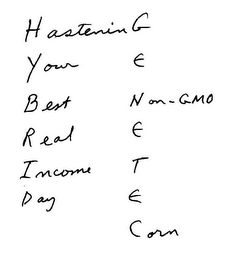 HasteninG
Your E
Best Non-GMO
Real E
Income T
Day E
Corn